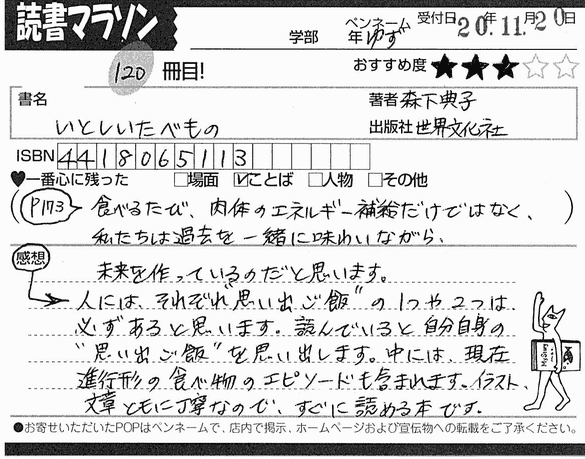 読書マラソン
学部 年 ペンネーム ゆず 受付日 20年11月20日
120 冊目! おすすめ度 ★★★☆☆
書名 著者 森下典子
いとしいたべもの 出版社 世界文化社
ISBN 4418065113
♥一番心に残った □場面 ☑ことば □人物 □その他
(P173) 食べるたび、肉体のエネルギー補給だけではなく、
私たちは過去を一緒に味わいながら、
未来を作っているのだと思います。
感想
人には、それぞれ"思い出ご飯"の1つや2つは、
必ずあると思います。読んでいると自分自身の
"思い出ご飯"を思い出します。中には、現在
進行形の食べ物のエピソードも含まれます。イラスト、
文章ともに丁寧なので、すぐに読める本です。
●お寄せいただいたPOPはペンネームで、店内で掲示、ホームページおよび宣伝物への転載をご了承ください。